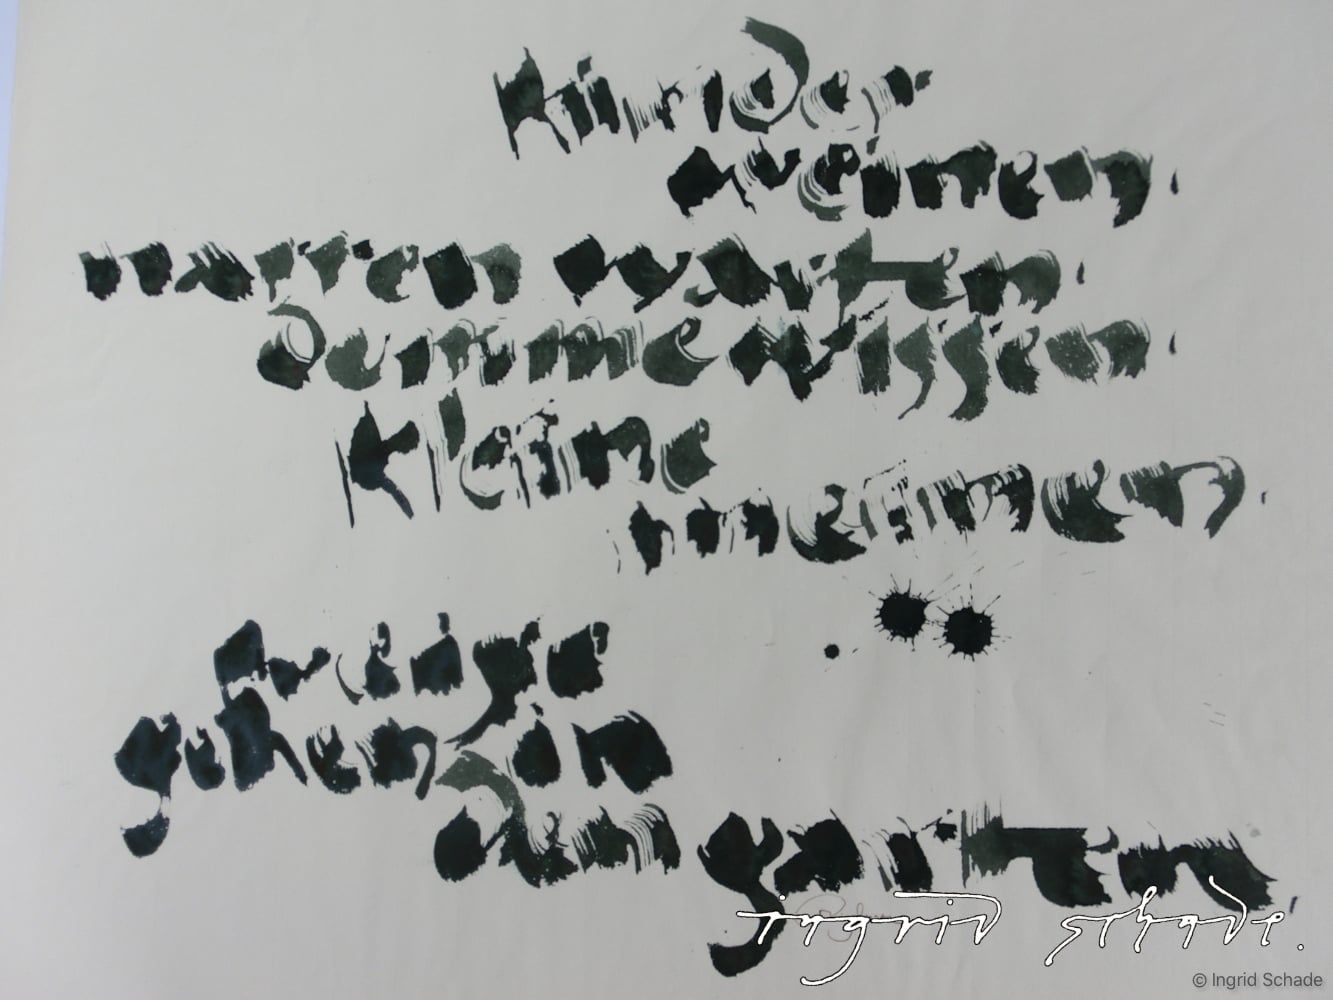 kinder
weinen.
narren warten.
dumme wissen.
kleine
meinen.
weise
gehen in
den garten.
ingrid schade.
© Ingrid Schade